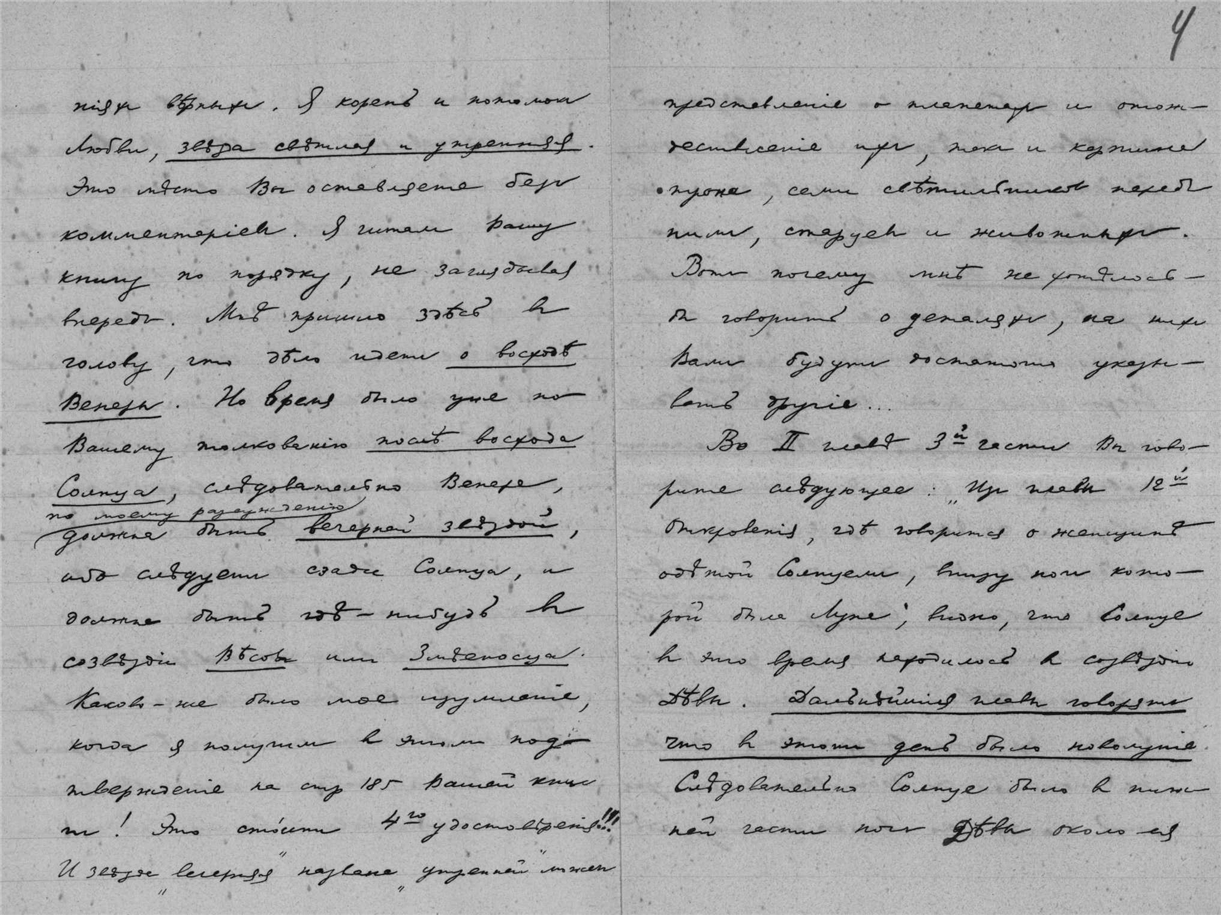 ніях вѣрных. Я корень и потомок
Любви, звѣзда свѣтлая и утренняя.
Это мѣсто Вы оставляете без
комментаріев. Я читал Вашу
книгу по порядку, не заглядывая
впередъ. Мнѣ пришло здѣсь в
голову, что дѣло идет о восходѣ
Венеры. Но время было уже по
Вашему толкованію послѣ восхода
Солнца, слѣдовательно Венера,
по моему разсужденію
должна быть вечерней звѣздой,
ибо слѣдует сзади Солнца, и
должна быть гдѣ-нибудь в
созвѣздіи Вѣсов или Змѣеносца.
Каково-же было мое изумленіе,
когда я получил в этом под-
твержденіе на стр 185 Вашей кни
ги! Это стóит 4го удостовѣренія!!!
И звѣзда „вечерняя" названа „утренней" может
4
представленіе о планетах и отож-
дествленіе их, так и картина
трона, семи свѣтильников перед
ним, старцев и животных.
Вот почему мнѣ не хотѣлось-
бы говорить о деталях, на них
Вам будут достаточно указы-
вать другіе...
Во II главѣ 3й части Вы гово-
рите слѣдующее: „Из главы 12й
Откровенія, гдѣ говорится о женщинѣ
одѣтой Солнцем, внизу ног кото-
рой была Луна, видно, что Солнце
в это время находилось в созвѣздіи
Дѣвы. Дальнѣйшія главы говорят
что в этот день было новолуніе.
Слѣдовательно Солнце было в ниж-
ней части ног Дѣвы около ея